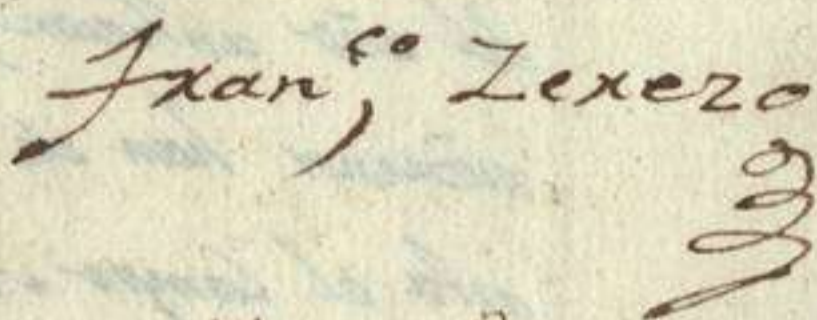 Fran,ᶜᵒ Zerezo